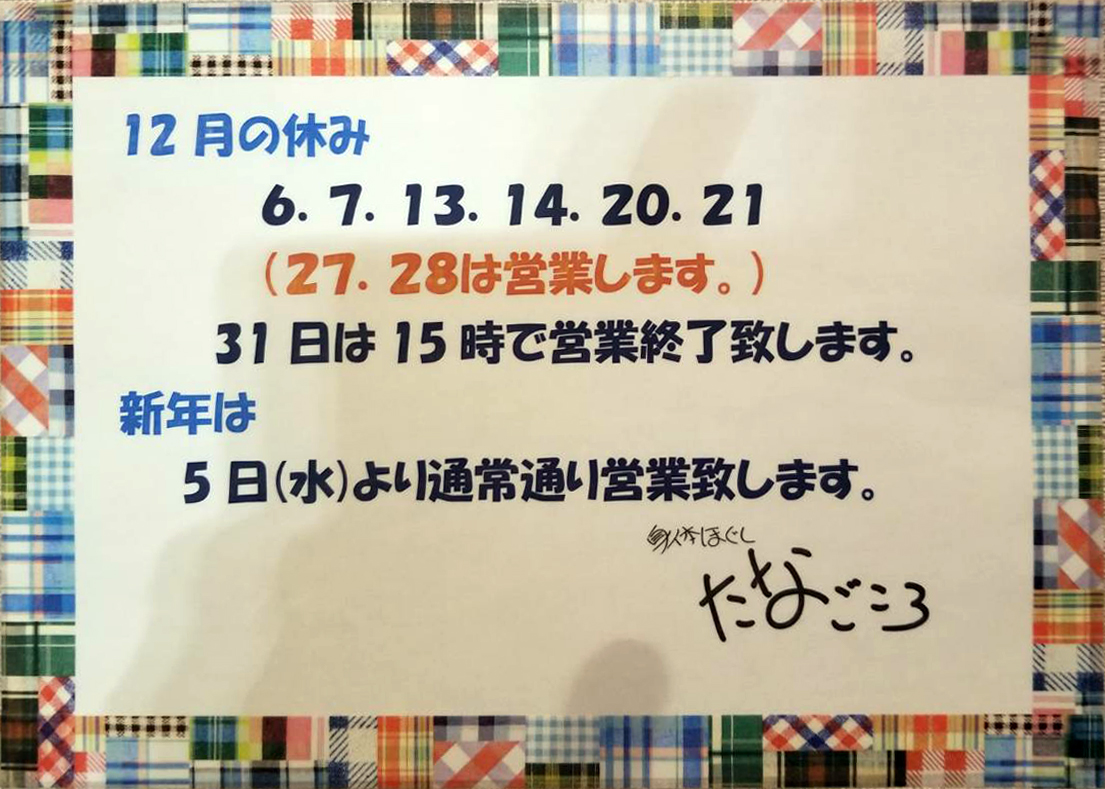 12月の休み
6. 7. 13. 14. 20. 21
(27. 28は営業します。)
31日は15時で営業終了致します。
新年は
5日(水)より通常通り営業致します。
身体ほぐし
たなごころ